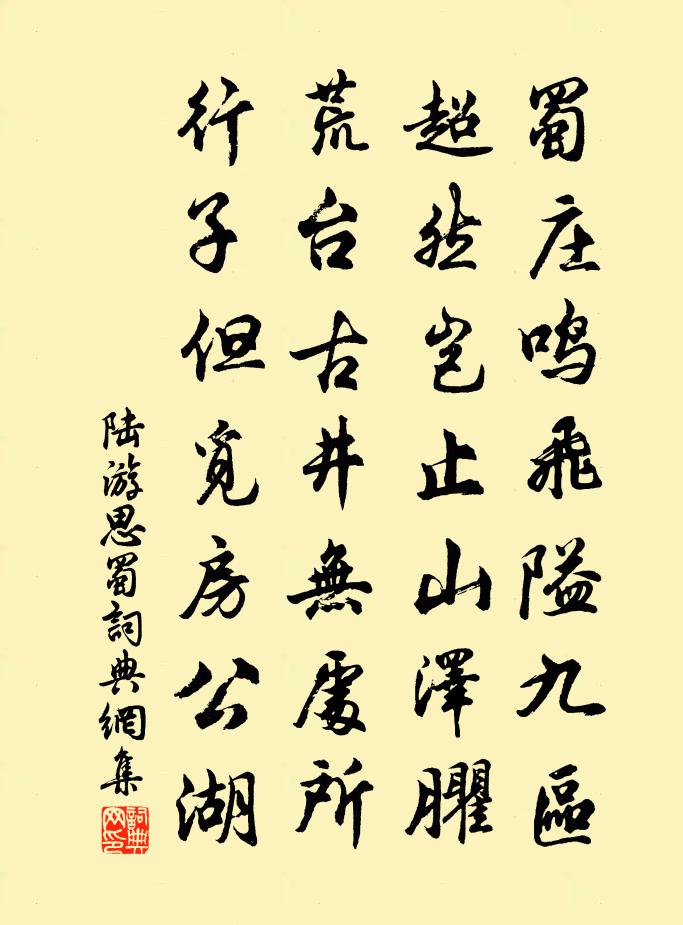 蜀庄鸣飛隘九區
超然岂止山澤臞
荒台古井無處所
行子但覓房公湖
陆游思蜀詞典網集
詞典网印